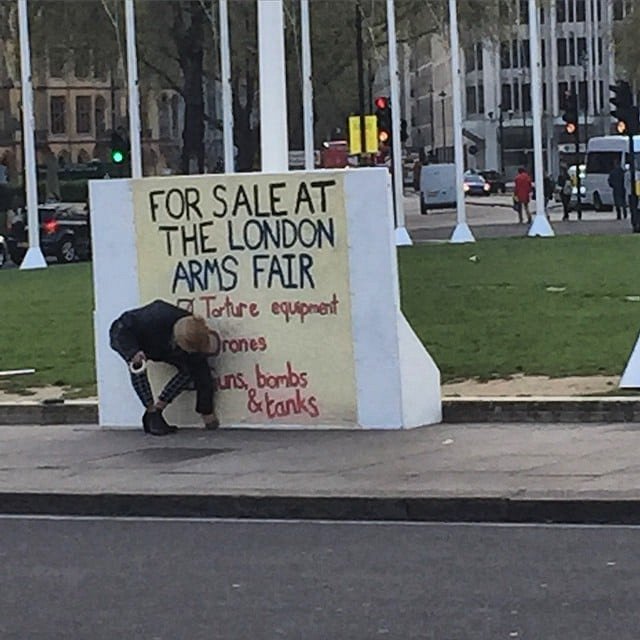 FOR SALE AT
THE LONDON
ARMS FAIR
☑ Torture equipment
Drones
uns, bombs
& tanks